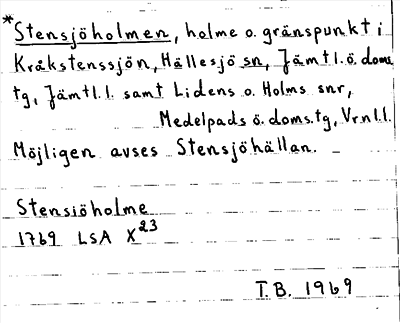 *Stensjöholmen, holme o. gränspunkt i
Kråkstenssjön, Hällesjö sn, Jämtl. ö. doms.
tg, Jämtl. l. samt Lidens o. Holms snr,
Medelpads ö. doms.tg, Vrnl.l.
Möjligen avses Stensjöhällan.
Stensiöholme
1769 LSA X23
T.B. 1969